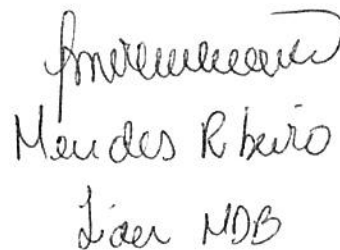 Mendes Ribeiro
Líder MDB